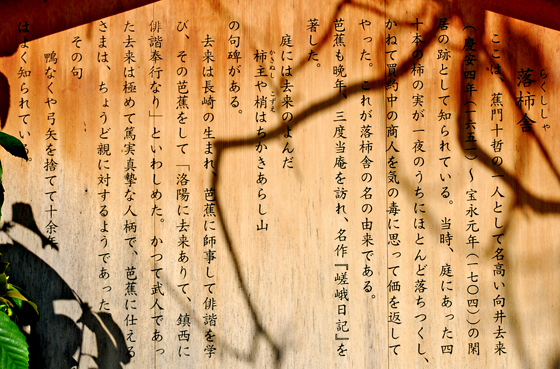 らくししゃ
落柿舎
ここは、蕉門十哲の一人として名高い向井去来
(慶安四年(一六五一)～宝永元年(一七〇四)の閑
居の跡として知られている。当時、庭にあった四
十本の柿の実が一夜のうちにほとんど落ちつくし、
かねて買約中の商人を気の毒に思って価を返して
やった。これが落柿舎の名の由来である。
芭蕉も晩年、三度当庵を訪れ、名作『嵯峨日記』を
著した。
庭には去来のよんだ
柿主や梢はちかきあらし山
かきぬし こずえ
の句碑がある。
去来は長崎の生まれ、芭蕉に師事して俳諧を学
び、その芭蕉をして「洛陽に去来ありて、鎮西に
俳諧奉行なり」といわしめた。かつて武人であっ
た去来は極めて篤実真摯な人柄で、芭蕉に仕える
さまは、ちょうど親に対するようであった
その句
鴨なくや弓矢を捨てて十余年
はよく知られている。